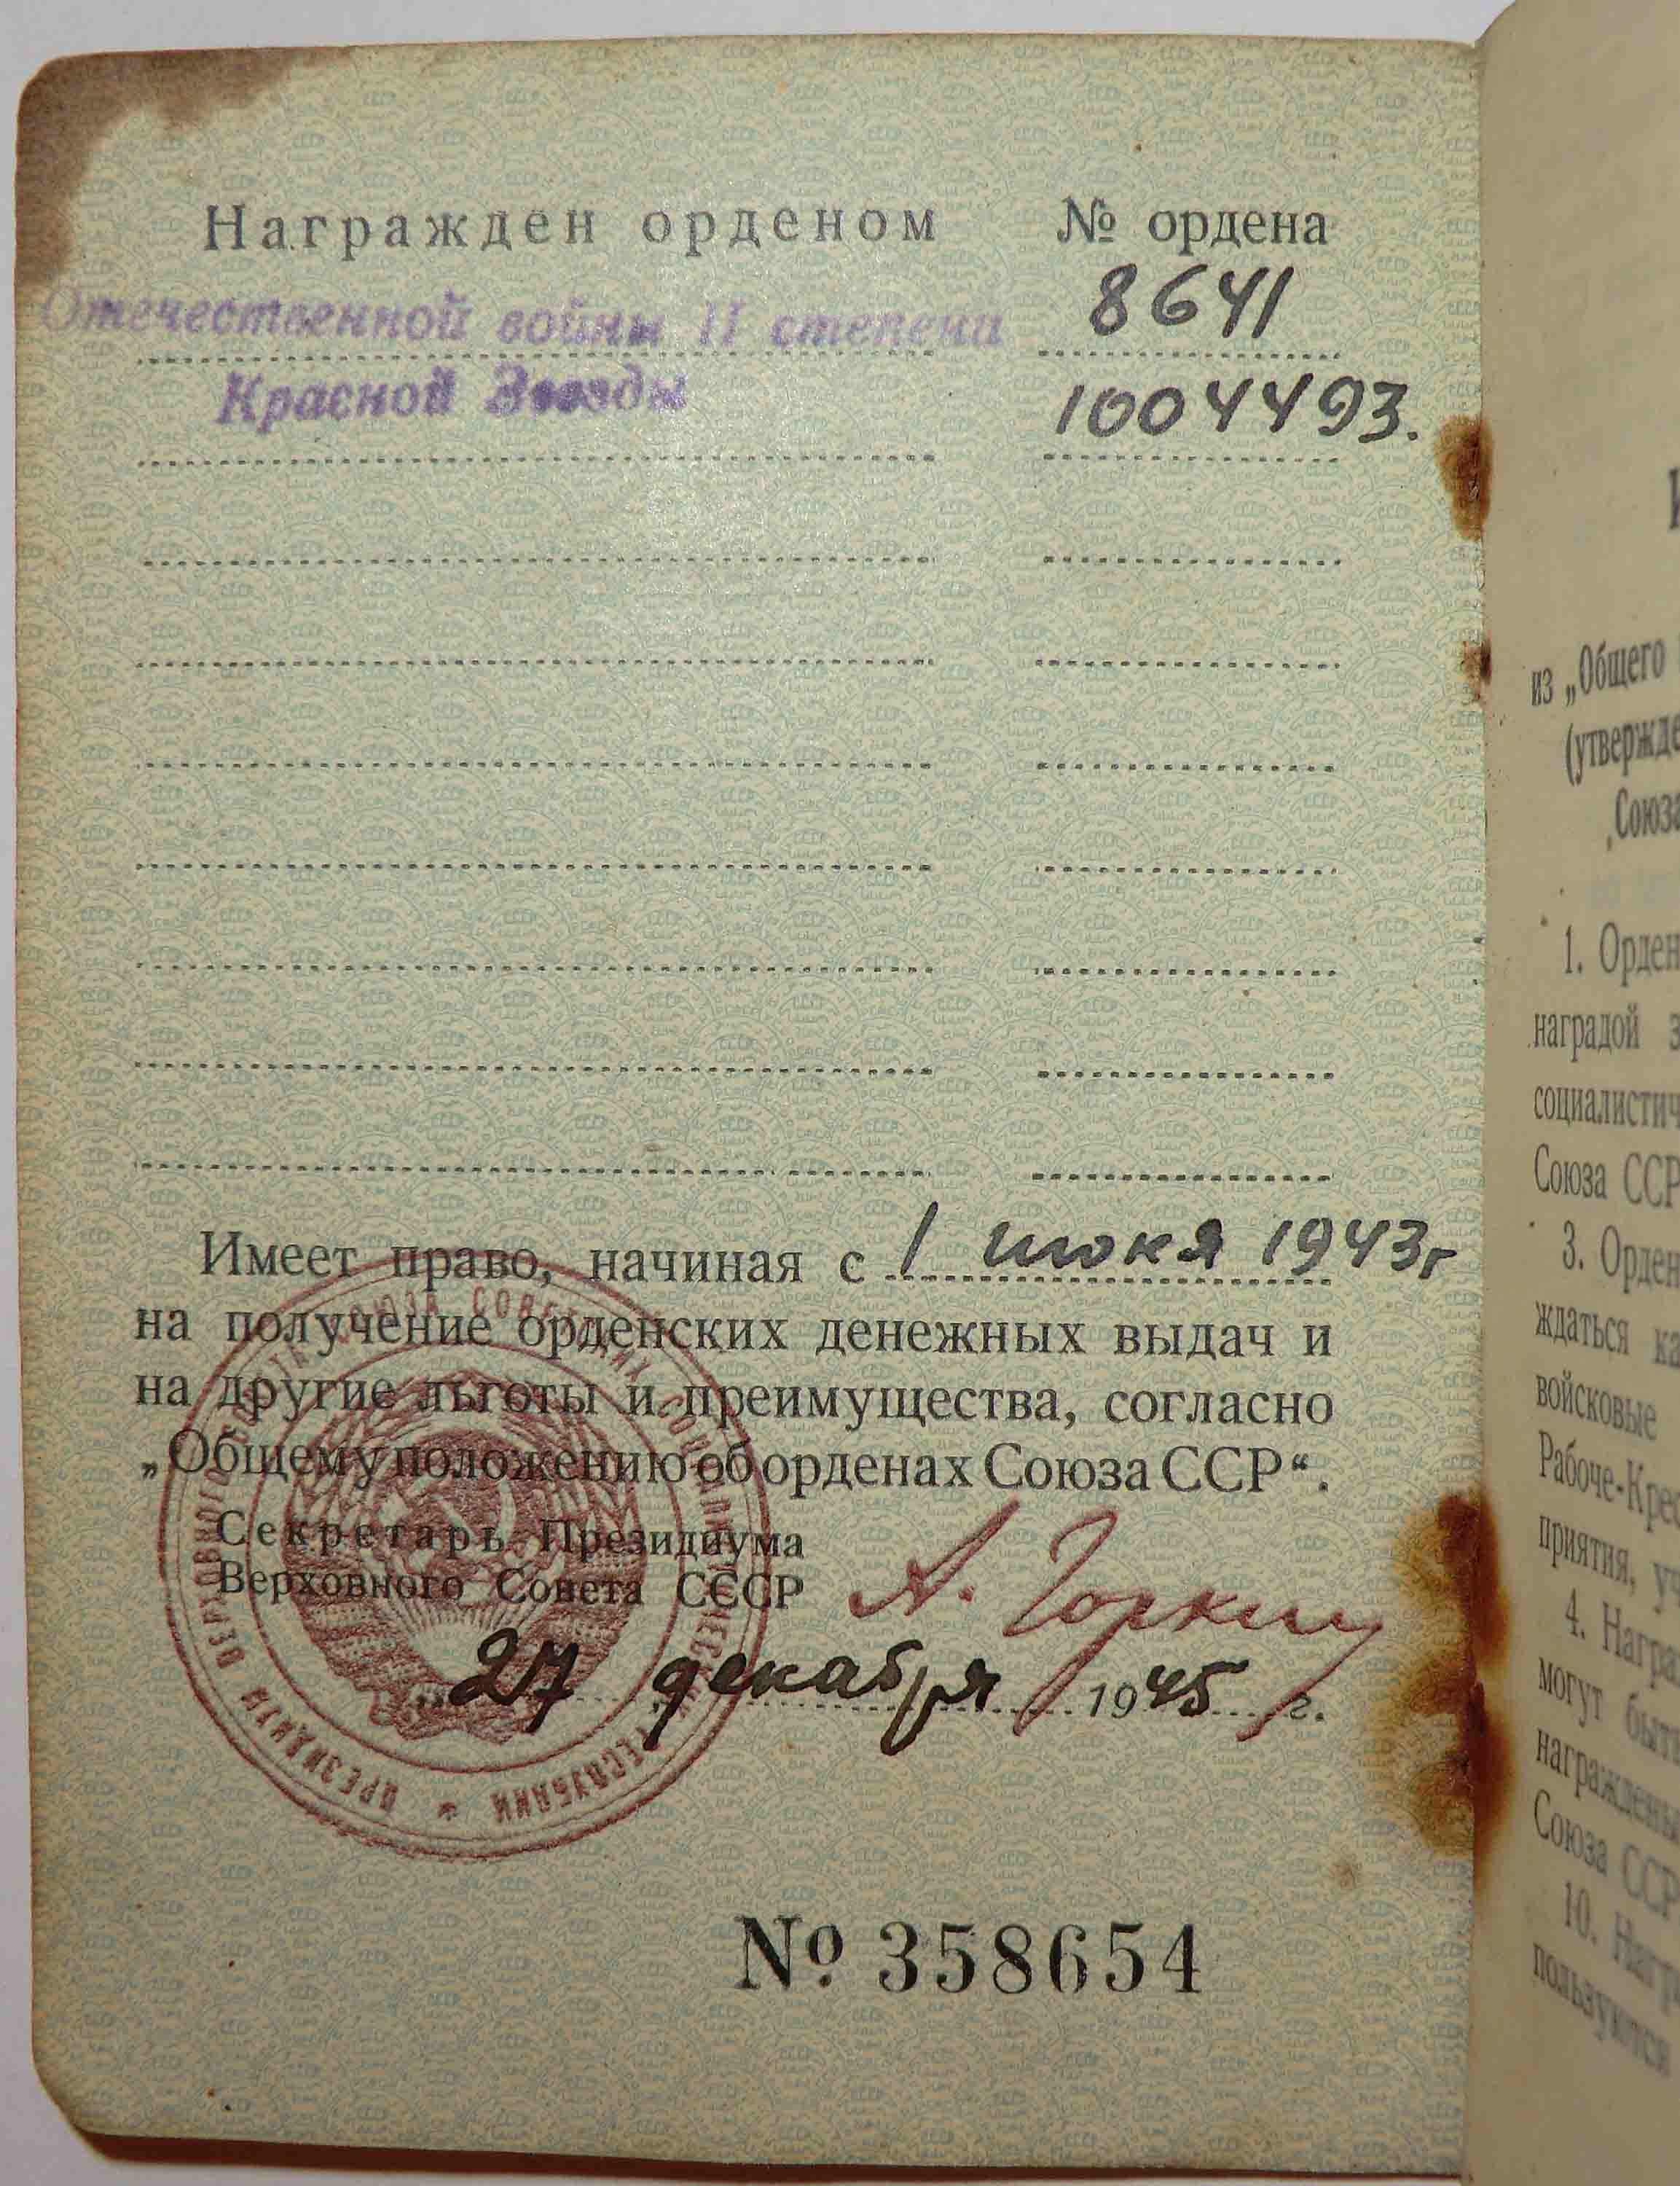 Награжден орденом № ордена
Отечественной войны II степени 8641
Красной Звезды 1004493.
Имеет право, начиная с 1 июня 1943г
на получение орденских денежных выдач и
на другие льготы и преимущества, согласно
„Общему положению об орденах Союза ССР“.
Секретарь Президиума
Верховного Совета СССР А. Горкин
27 декабря 1945 г.
№ 358654
ПРЕЗИДИУМ ВЕРХОВНОГО
из „Общего
(утвержде
Союза
1. Орден
наградой з
социалистич
Союза ССР
3. Орден
ждаться ка
войсковые
Рабоче-Крес
приятия, уч
4. Награ
могут быть
награждены
Союза ССР
10. Нагр
пользуются